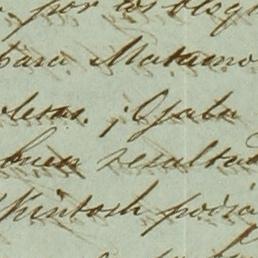 por los bloq
para Matamo
letas. ¡Ojala
buen resulta
Kintosh podra